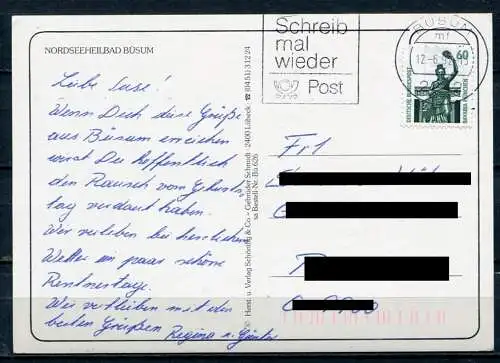 NORDSEEHEILBAD BÜSUM
Liebe Suse!
Wenn Dich diese Grüße
aus Büsum erreichen
wirst Du hoffentlich
den Rausch vom Geburts
tag verdaut haben.
Wir verleben bei herrlichem
Wetter ein paar schöne
Rentnertage.
Wir verbleiben mit den
besten Grüßen Regina u. Günter
Herst. u. Verlag Schöning & Co - Gebrüder Schmidt · 2400 Lübeck · ☎ (0451) 31224
sa Bestell-Nr. Bü 626
Schreib
mal
wieder
Post
BÜSUM
mf
12-6.
60
DEUTSCHE BUNDESPOST
BAVARIA MÜNCHEN
Frl